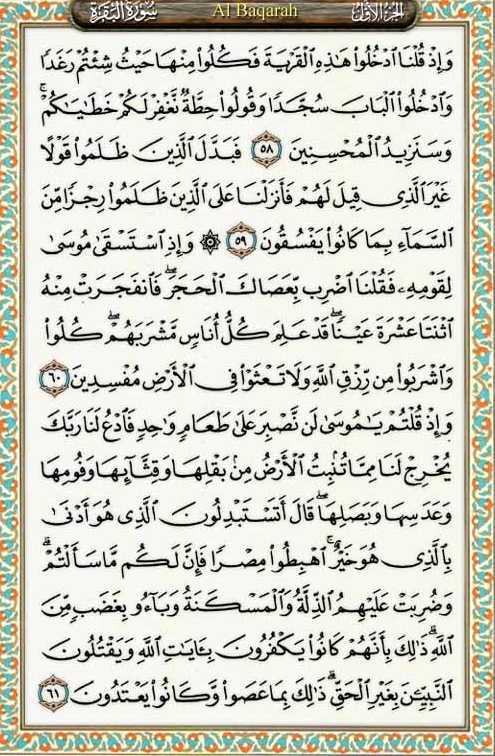 سُورَةُ البَقَرَةِ Al Baqarah الجُزءُ الأوَّلُ
وَإِذْ قُلْنَا ٱدْخُلُوا۟ هَٰذِهِ ٱلْقَرْيَةَ فَكُلُوا۟ مِنْهَا حَيْثُ شِئْتُمْ رَغَدًا
وَٱدْخُلُوا۟ ٱلْبَابَ سُجَّدًا وَقُولُوا۟ حِطَّةٌ نَّغْفِرْ لَكُمْ خَطَٰيَٰكُمْ ۚ
وَسَنَزِيدُ ٱلْمُحْسِنِينَ ٥٨ فَبَدَّلَ ٱلَّذِينَ ظَلَمُوا۟ قَوْلًا
غَيْرَ ٱلَّذِى قِيلَ لَهُمْ فَأَنزَلْنَا عَلَى ٱلَّذِينَ ظَلَمُوا۟ رِجْزًا مِّنَ
ٱلسَّمَآءِ بِمَا كَانُوا۟ يَفْسُقُونَ ٥٩ ۞ وَإِذِ ٱسْتَسْقَىٰ مُوسَىٰ
لِقَوْمِهِۦ فَقُلْنَا ٱضْرِب بِّعَصَاكَ ٱلْحَجَرَ ۖ فَٱنفَجَرَتْ مِنْهُ
ٱثْنَتَا عَشْرَةَ عَيْنًا ۖ قَدْ عَلِمَ كُلُّ أُنَاسٍ مَّشْرَبَهُمْ ۖ كُلُوا۟
وَٱشْرَبُوا۟ مِن رِّزْقِ ٱللَّهِ وَلَا تَعْثَوْا۟ فِى ٱلْأَرْضِ مُفْسِدِينَ ٦٠
وَإِذْ قُلْتُمْ يَٰمُوسَىٰ لَن نَّصْبِرَ عَلَىٰ طَعَامٍ وَٰحِدٍ فَٱدْعُ لَنَا رَبَّكَ
يُخْرِجْ لَنَا مِمَّا تُنۢبِتُ ٱلْأَرْضُ مِنۢ بَقْلِهَا وَقِثَّآئِهَا وَفُومِهَا
وَعَدَسِهَا وَبَصَلِهَا ۖ قَالَ أَتَسْتَبْدِلُونَ ٱلَّذِى هُوَ أَدْنَىٰ
بِٱلَّذِى هُوَ خَيْرٌ ۚ ٱهْبِطُوا۟ مِصْرًا فَإِنَّ لَكُم مَّا سَأَلْتُمْ ۗ
وَضُرِبَتْ عَلَيْهِمُ ٱلذِّلَّةُ وَٱلْمَسْكَنَةُ وَبَآءُو بِغَضَبٍ مِّنَ
ٱللَّهِ ۗ ذَٰلِكَ بِأَنَّهُمْ كَانُوا۟ يَكْفُرُونَ بِـَٔايَٰتِ ٱللَّهِ وَيَقْتُلُونَ
ٱلنَّبِيِّـۧنَ بِغَيْرِ ٱلْحَقِّ ۗ ذَٰلِكَ بِمَا عَصَوا۟ وَّكَانُوا۟ يَعْتَدُونَ ٦١